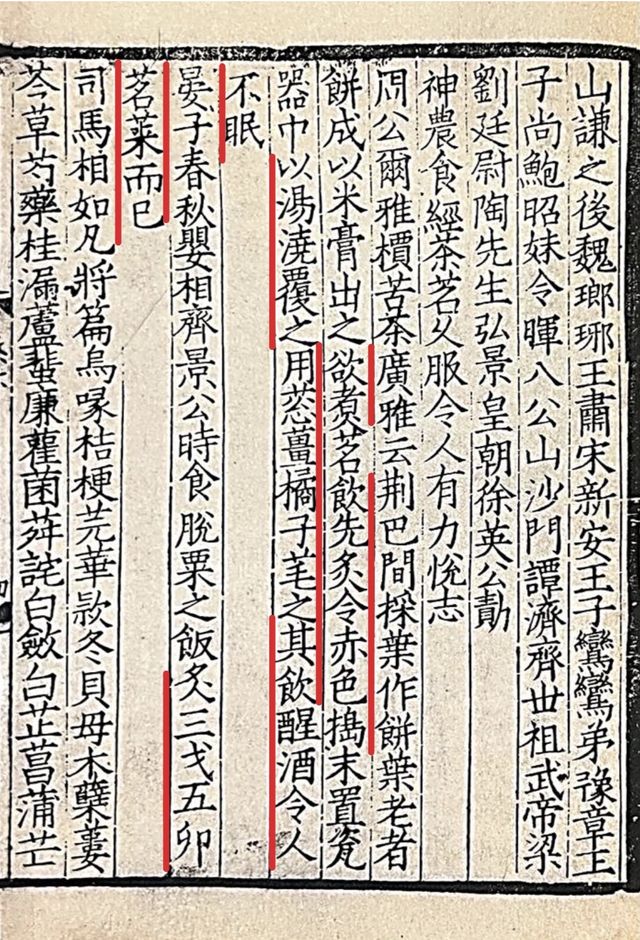 山謙之後魏瑯琊王肅宋新安王子鸞鸞弟豫章王
子尚鮑昭妹令暉八公山沙門譚濟齊世祖武帝梁
劉廷尉陶先生弘景皇朝徐英公勣
神農食經茶茗乆服令人有力恱志
周公爾雅檟苦茶廣雅云荆巴間採葉作餅葉老者
餅成以米膏出之欲煑茗飲先炙令赤色搗末置瓷
器中以湯澆覆之用葱薑橘子芼之其飲醒酒令人
不眠
晏子春秋嬰相齊景公時食脫粟之飯炙三弋五卯
茗菜而已
司馬相如凡將篇烏喙桔梗芫華款冬貝母木蘗蔞
芩草芍藥桂漏蘆蜚廉雚菌荈詫白斂白芷菖蒲芒